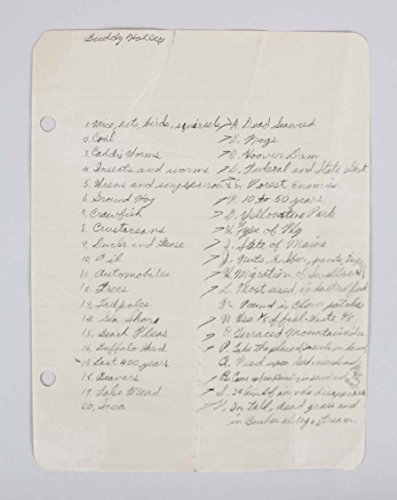 Buddy Holley
1. Mice, rats, birds, squirrels A. Dead Seaweed
2. Coal B. Frogs
3. Caddis Worms C. Hoover Dam
4. Insects and worms D. Federal and State Govt
5. Wrens and song sparrows E. Forest Enemies
6. Ground Hog F. 10 to 50 years
7. Crawfish G. Yellowstone Park
8. Crustaceans H. Type of Fly
9. Ducks and Geese I. State of Maine
10. Oil J. Nuts, Rubber, paints,
11. Automobiles K. Migration of Swallows
12. Trees L. Most used industrial fuel
13. Tadpoles M. Found in
14. Sea Shore N. Use ⅔ of fuel
15. Beach Fleas O. Terraced Mountain
16. Buffalo Herd P. Take the place of
17. Last 400 years Q. Used upon
18. Beavers R.
19. Lake Mead S. 24 kinds of animals disappeared
20. Incas T. In tall, dead grass and
in Bushes along stream.